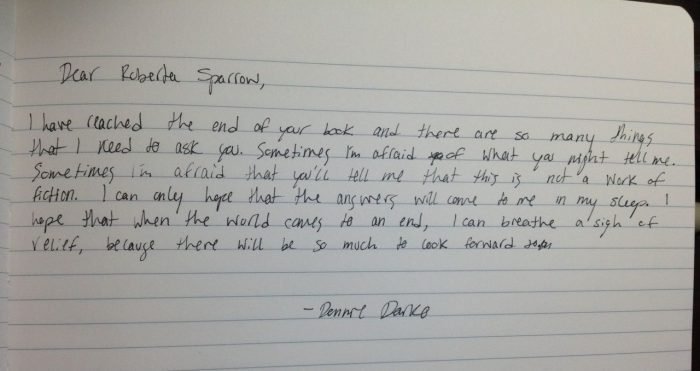 Dear Roberta Sparrow,
I have reached the end of your book and there are so many things
that I need to ask you. Sometimes I'm afraid of what you might tell me.
Sometimes I'm afraid that you'll tell me that this is not a work of
fiction. I can only hope that the answers will come to me in my sleep. I
hope that when the world comes to an end, I can breathe a sigh of
relief, because there will be so much to look forward
- Donnie Darko